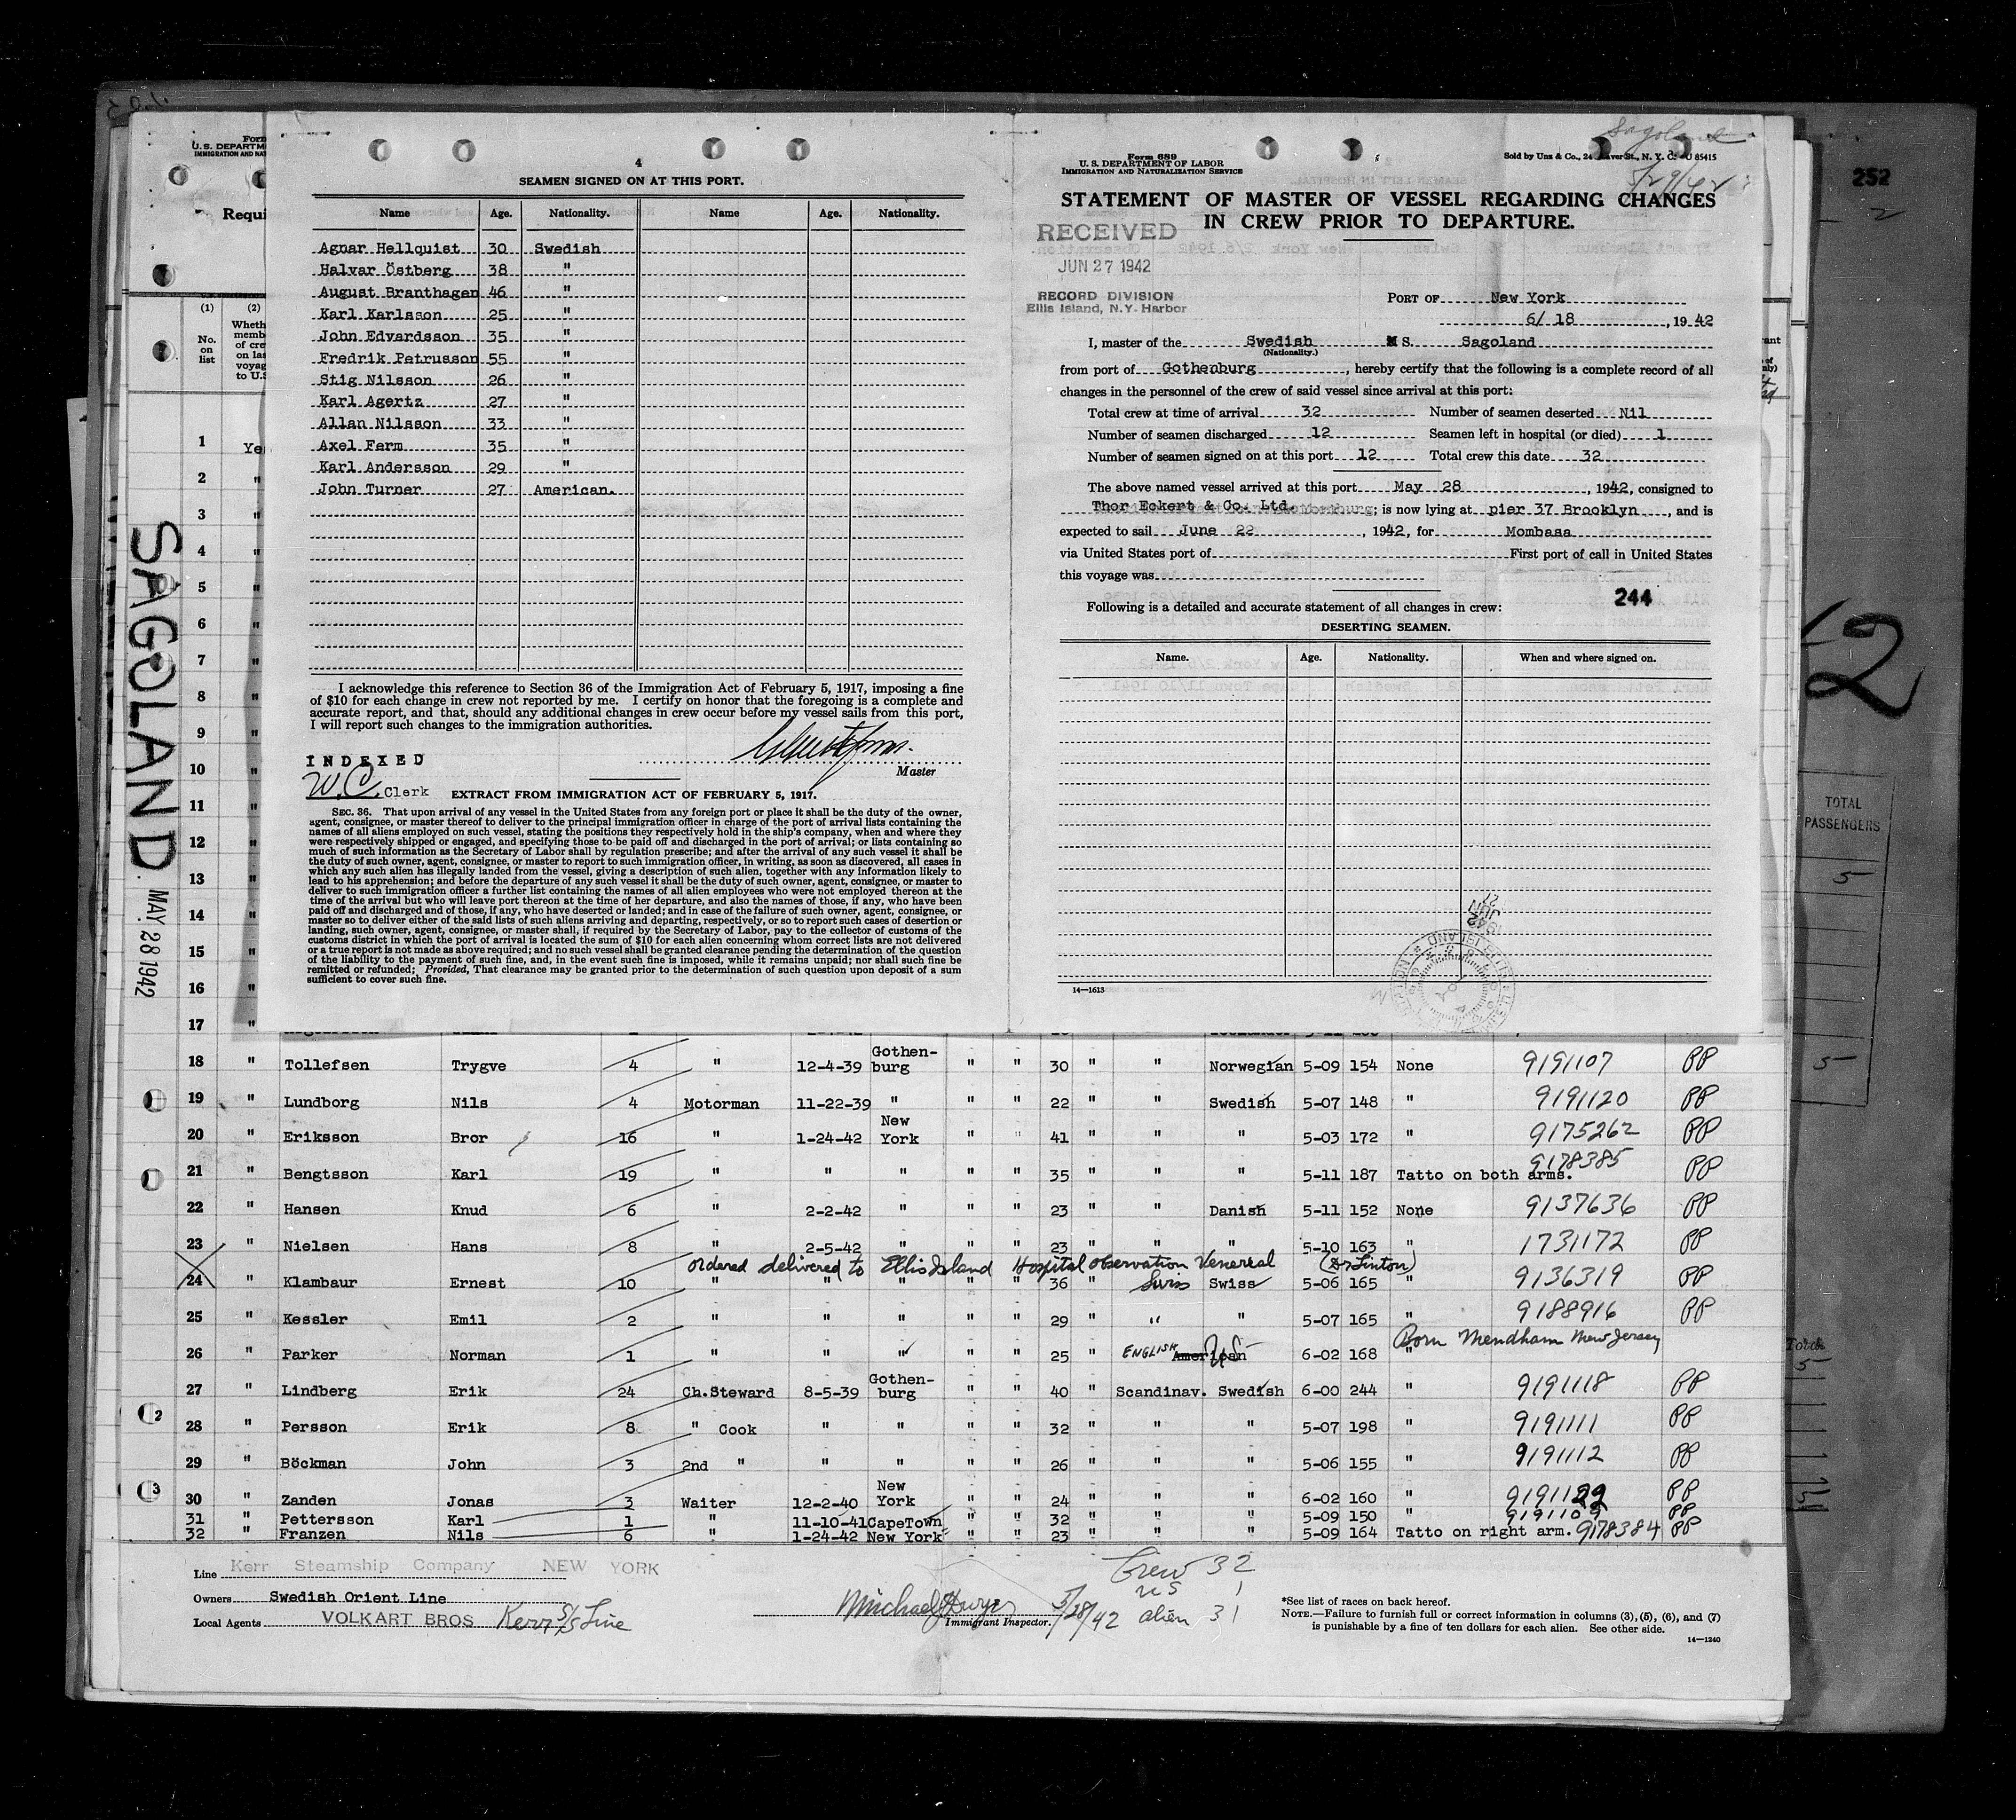 252
Form
U.S. DEPARTM
IMMIGRATION AND NA
Requi
SAGOLAND
MAY 28 1942
4
SEAMEN SIGNED ON AT THIS PORT.
Name Age. Nationality. Name Age. Nationality.
Agnar Hellquist 30 Swedish
Halvar Östberg 38 "
August Branthagen 46 "
Karl Karlsson 25 "
John Edvardsson 35 "
Fredrik Petrusson 55 "
Stig Nilsson 26 "
Karl Agertz 27 "
Allan Nilsson 33 "
Axel Ferm 35 "
Karl Andersson 29 "
John Turner 27 American.
I acknowledge this reference to Section 36 of the Immigration Act of February 5, 1917, imposing a fine
of $10 for each change in crew not reported by me. I certify on honor that the foregoing is a complete and
accurate report, and that, should any additional changes in crew occur before my vessel sails from this port,
I will report such changes to the immigration authorities.
Master
INDEXED
W.C. Clerk
EXTRACT FROM IMMIGRATION ACT OF FEBRUARY 5, 1917.
SEC. 36. That upon arrival of any vessel in the United States from any foreign port or place it shall be the duty of the owner,
agent, consignee, or master thereof to deliver to the principal immigration officer in charge of the port of arrival lists containing the
names of all aliens employed on such vessel, stating the positions they respectively hold in the ship's company, when and where they
were respectively shipped or engaged, and specifying those to be paid off and discharged in the port of arrival; or lists containing so
much of such information as the Secretary of Labor shall by regulation prescribe; and after the arrival of any such vessel it shall be
the duty of such owner, agent, consignee, or master to report to such immigration officer, in writing, as soon as discovered, all cases in
which any such alien has illegally landed from the vessel, giving a description of such alien, together with any information likely to
lead to his apprehension; and before the departure of any such vessel it shall be the duty of such owner, agent, consignee, or master to
deliver to such immigration officer a further list containing the names of all alien employees who were not employed thereon at the
time of the arrival but who will leave port thereon at the time of her departure, and also the names of those, if any, who have been
paid off and discharged and of those, if any, who have deserted or landed; and in case of the failure of such owner, agent, consignee, or
master so to deliver either of the said lists of such aliens arriving and departing, respectively, or so to report such cases of desertion or
landing, such owner, agent, consignee, or master shall, if required by the Secretary of Labor, pay to the collector of customs of the
customs district in which the port of arrival is located the sum of $10 for each alien concerning whom correct lists are not delivered
or a true report is not made as above required; and no such vessel shall be granted clearance pending the determination of the question
of the liability to the payment of such fine, and, in the event such fine is imposed, while it remains unpaid; nor shall such fine be
remitted or refunded; Provided, That clearance may be granted prior to the determination of such question upon deposit of a sum
sufficient to cover such fine.
Sagoland
5/29/42
Form 689
U. S. DEPARTMENT OF LABOR
IMMIGRATION AND NATURALIZATION SERVICE
Sold by Unz & Co., 24 Beaver St., N. Y. C. U 85415
STATEMENT OF MASTER OF VESSEL REGARDING CHANGES
IN CREW PRIOR TO DEPARTURE.
RECEIVED
JUN 27 1942
RECORD DIVISION
Ellis Island, N.Y. Harbor
PORT OF New York
6/ 18, 1942
I, master of the Swedish M S. Sagoland
(Nationality.)
from port of Gothenburg, hereby certify that the following is a complete record of all
changes in the personnel of the crew of said vessel since arrival at this port:
Total crew at time of arrival 32 Number of seamen deserted Nil
Number of seamen discharged 12 Seamen left in hospital (or died) 1
Number of seamen signed on at this port 12 Total crew this date 32
The above named vessel arrived at this port May 28, 1942, consigned to
Thor Eckert & Co. Ltd.; is now lying at pier 37 Brooklyn, and is
expected to sail June 22, 1942, for Mombasa
via United States port of First port of call in United States
this voyage was
244
Following is a detailed and accurate statement of all changes in crew:
DESERTING SEAMEN.
Name. Age. Nationality. When and where signed on.
14—1613
1942 JUN 27
ELLIS ISLAND
(1) (2)
No. on list
Wheth
memb
of cre
on las
voyag
to U.S
1 Yes
2 "
3 "
4 "
5 "
6 "
7 "
8 "
9 "
10 "
11 "
12 "
13 "
14 "
15 "
16 "
17 "
18 " Tollefsen Trygve 4 " 12-4-39 Gothen-burg " " 30 " " Norwegian 5-09 154 None 9191107 PP
19 " Lundborg Nils 4 Motorman 11-22-39 " " " 22 " " Swedish 5-07 148 " 9191120 PP
20 " Eriksson Bror 16 " 1-24-42 New York " " 41 " " " 5-03 172 " 9175262 PP
21 " Bengtsson Karl 19 " " " " " 35 " " " 5-11 187 Tatto on both arms. 9178385 PP
22 " Hansen Knud 6 " 2-2-42 " " " 23 " " Danish 5-11 152 None 9137636 PP
23 " Nielsen Hans 8 " 2-5-42 " " " 23 " " " 5-10 163 " 1731172 PP
ordered delivered to Ellis Island Hospital observation Venereal (Dr Linton)
24 " Klambaur Ernest 10 " " " " " 36 " Swiss Swiss 5-06 165 " 9136319 PP
25 " Kessler Emil 2 " " " " " 29 " " " 5-07 165 " 9188916 PP
Born Mendham New Jersey
26 " Parker Norman 1 " " " " " 25 " ENGLISH American US 6-02 168 "
27 " Lindberg Erik 24 Ch.Steward 8-5-39 Gothen-burg " " 40 " Scandinav. Swedish 6-00 244 " 9191118 PP
28 " Persson Erik 8 " Cook " " " " 32 " " " 5-07 198 " 9191111 PP
29 " Böckman John 3 2nd " " " " " 26 " " " 5-06 155 " 9191112 PP
30 " Zanden Jonas 3 Waiter 12-2-40 New York " " 24 " " " 6-02 160 " 9191122 PP
31 " Pettersson Karl 1 " 11-10-41 CapeTown " " 32 " " " 5-09 150 " 9191109 PP
32 " Franzen Nils 6 " 1-24-42 New York " " 23 " " " 5-09 164 Tatto on right arm. 9178384 PP
Line Kerr Steamship Company NEW YORK
Owners Swedish Orient Line
Local Agents VOLKART BROS Kerr S/S Line
Michael Dwyer 5/28/42
Immigrant Inspector.
Crew 32
US 1
alien 31
*See list of races on back hereof.
NOTE.—Failure to furnish full or correct information in columns (3), (5), (6), and (7)
is punishable by a fine of ten dollars for each alien. See other side.
14—1240
TOTAL
PASSENGERS
5
5
Total
5